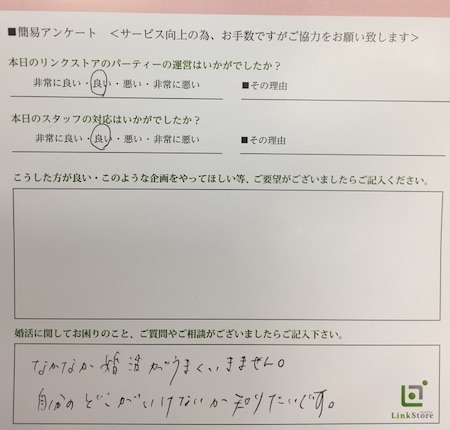 ■簡易アンケート ＜サービス向上の為、お手数ですがご協力をお願い致します＞
本日のリンクストアのパーティーの運営はいかがでしたか？
非常に良い・良い・悪い・非常に悪い ■その理由
本日のスタッフの対応はいかがでしたか？
非常に良い・良い・悪い・非常に悪い ■その理由
こうした方が良い・このような企画をやってほしい等、ご要望がございましたらご記入ください。
婚活に関してお困りのこと、ご質問やご相談がございましたらご記入下さい。
なかなか婚活がうまくいきません。
自分のどこがいけないか知りたいです。
LinkStore